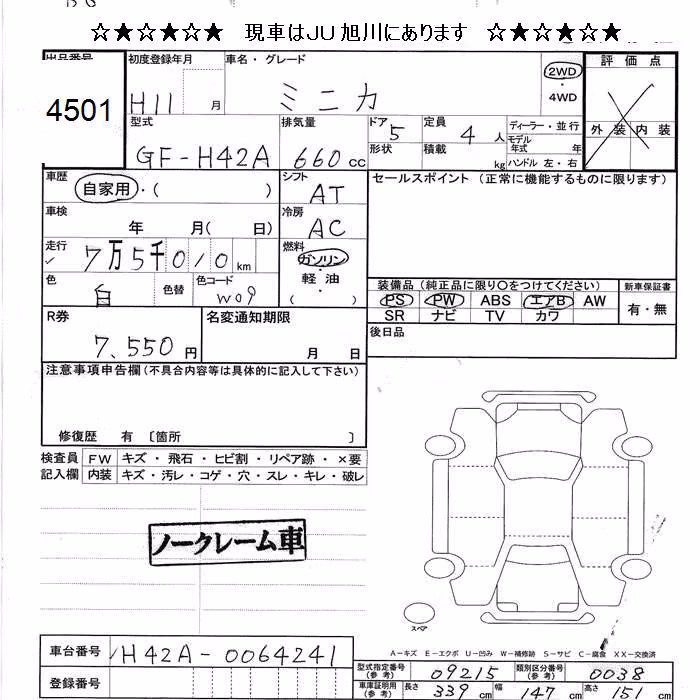 ☆★☆★☆★ 現車はJU旭川にあります ☆★☆★☆★
出品番号 初度登録年月 車名・グレード 評価点
4501 H11 月 ミニカ 2WD
4WD
外装 内装
型式 排気量 ドア 定員 ディーラー・並行
GF-H42A 660 cc 5 4 人 モデル年式 年
形状 積載 kg ハンドル 左・右
車歴 シフト セールスポイント (正常に機能するものに限ります)
自家用・( ) AT
車検 冷房
年 月( 日) AC
走行 燃料
7万5千010km ガソリン・
軽油
( )
色 色替 色コード
白 W09
装備品(純正品に限り○をつけてください) 新車保証書
PS PW ABS エアB AW 有・無
SR ナビ TV カワ
R券 名変通知期限 後日品
7,550円 月 日
注意事項申告欄(不具合内容等は具体的に記入して下さい)
修復歴 有 〔箇所 〕
検査員 FW キズ・飛石・ヒビ割・リペア跡・×要
記入欄 内装 キズ・汚レ・コゲ・穴・スレ・キレ・破レ
ノークレーム車
スペア
A-キズ E-エクボ U-凹み W-補修跡 S-サビ C-腐食 XX-交換済
車台番号 H42A-0064241
登録番号
型式指定番号(参考) 09215 類別区分番号(参考) 0038
車庫証明用(参考) 長さ 339 cm 幅 147 cm 高さ 151 cm